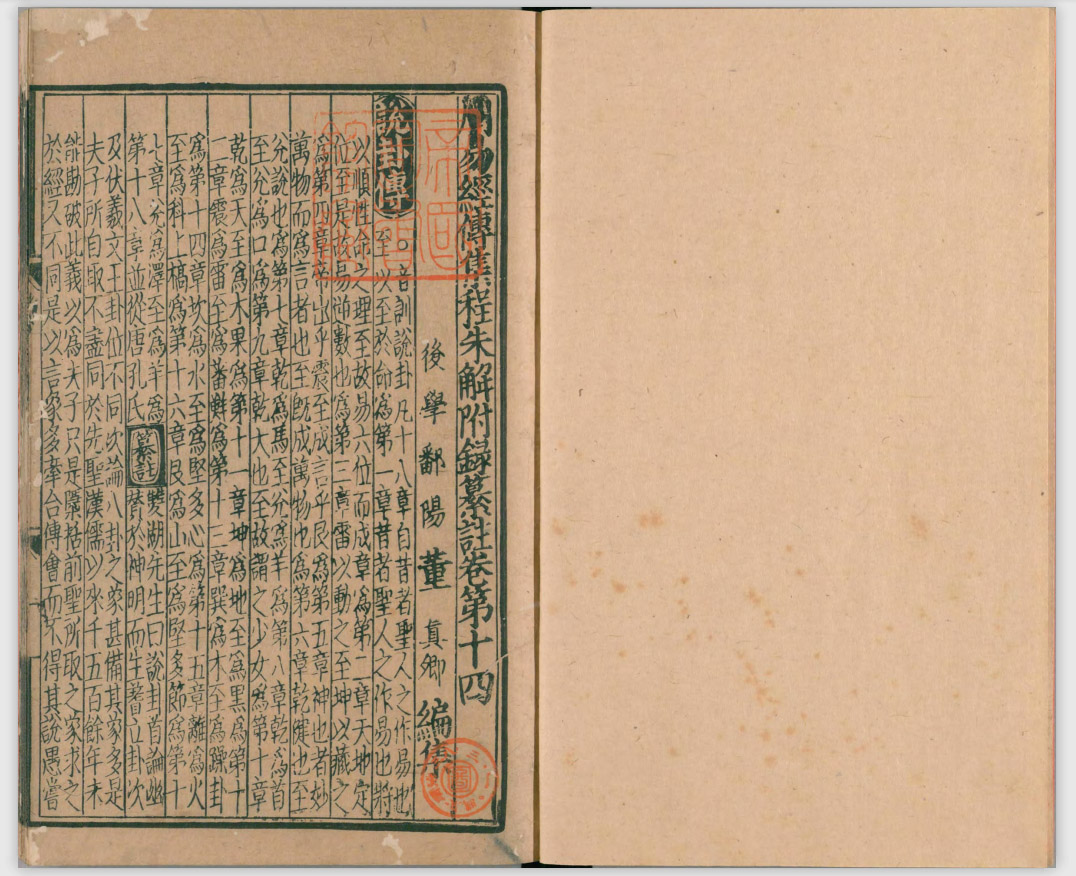 周易經傳集程朱解附錄纂註卷第十四
後學鄱陽董真卿編集
說卦傳
○音訓說卦凡十八章自昔者聖人之作易也
至以至於命爲第一章昔者聖人之作易也將
以順性命之理至故易六位而成章爲第二章天地定
位至是故易逆數也爲第三章雷以動之至坤以藏之
爲第四章帝出乎震至成言乎艮爲第五章神也者妙
萬物而爲言者也至旣成萬物也爲第六章乾健也至
兊說也爲第七章乾爲馬至兊爲羊爲第八章乾爲首
至兊爲口爲第九章乾大也至故謂之少女爲第十章
乾爲天至爲木果爲第十一章坤爲地至爲黑爲第十
二章震爲雷至爲蕃鮮爲第十三章巽爲木至爲躁卦
爲第十四章坎爲水至爲堅多心爲第十五章離爲火
至爲科上槁爲第十六章艮爲山至爲堅多節爲第十
七章兊爲澤至爲羊爲
第十八章並從唐孔氏
纂註
雙湖先生曰說卦首論幽
贊於神明而生蓍立卦次
及伏羲文王卦位不同次論八卦之象甚備其象多是
夫子所自取不盡同於先聖漢儒以來千五百餘年未
能勘破此義以爲夫子只是檃括前聖所取之象求之
於經又不同是以言象多牽合傅會而不得其說愚嘗